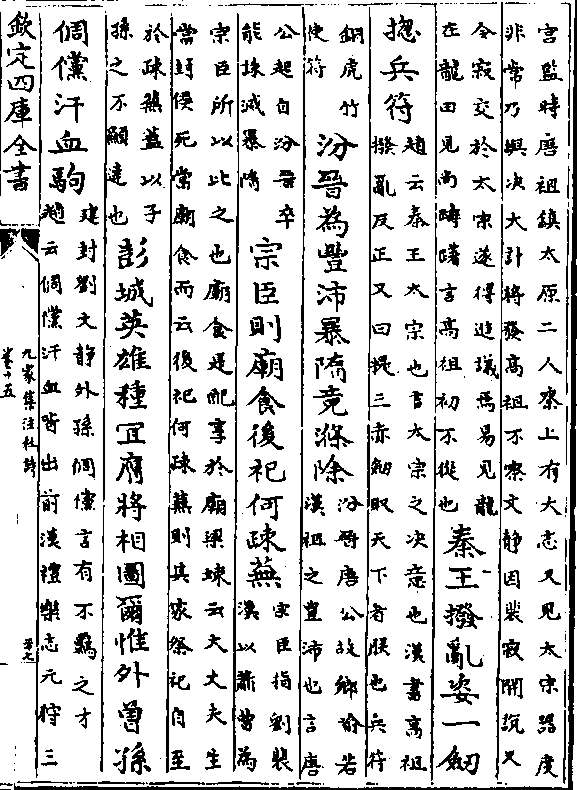 宫監時唐祖鎮太原二人察上有大志又見太宗器度
非常乃與决大計將發髙祖不察文静因裴寂開說又
令寂交於太宗遂得進議焉易見龍
在龍田見尚躊躇言髙祖初不從也
秦王撥亂姿一劒
揔兵符
趙云秦王太宗也言太宗之决意也漢書髙祖
撥亂反正又曰提三赤劒取天下者朕也兵符
銅虎竹
使符
汾晉為豐沛暴隋竟滌除
汾晉唐公故鄉喻若
漢祖之豐沛也言唐
公起自汾晉卒
能埽滅暴隋
宗臣則廟食後祀何疎蕪
宗臣指劉裴
漢以蕭曹為
宗臣所以比之也廟食是配享於廟梁竦云大丈夫生
當封侯死當廟食而云後祀何疎蕪則其家祭祀自至
於疎蕪蓋以子
孫之不顯達也
彭城英雄種宜膺將相圖爾惟外曾孫
倜儻汗血駒
建封劉文静外孫倜儻言有不羈之才
趙云倜儻汗血皆出前漢禮樂志元狩三
欽定四庫全書
九家集注杜詩
卷十五